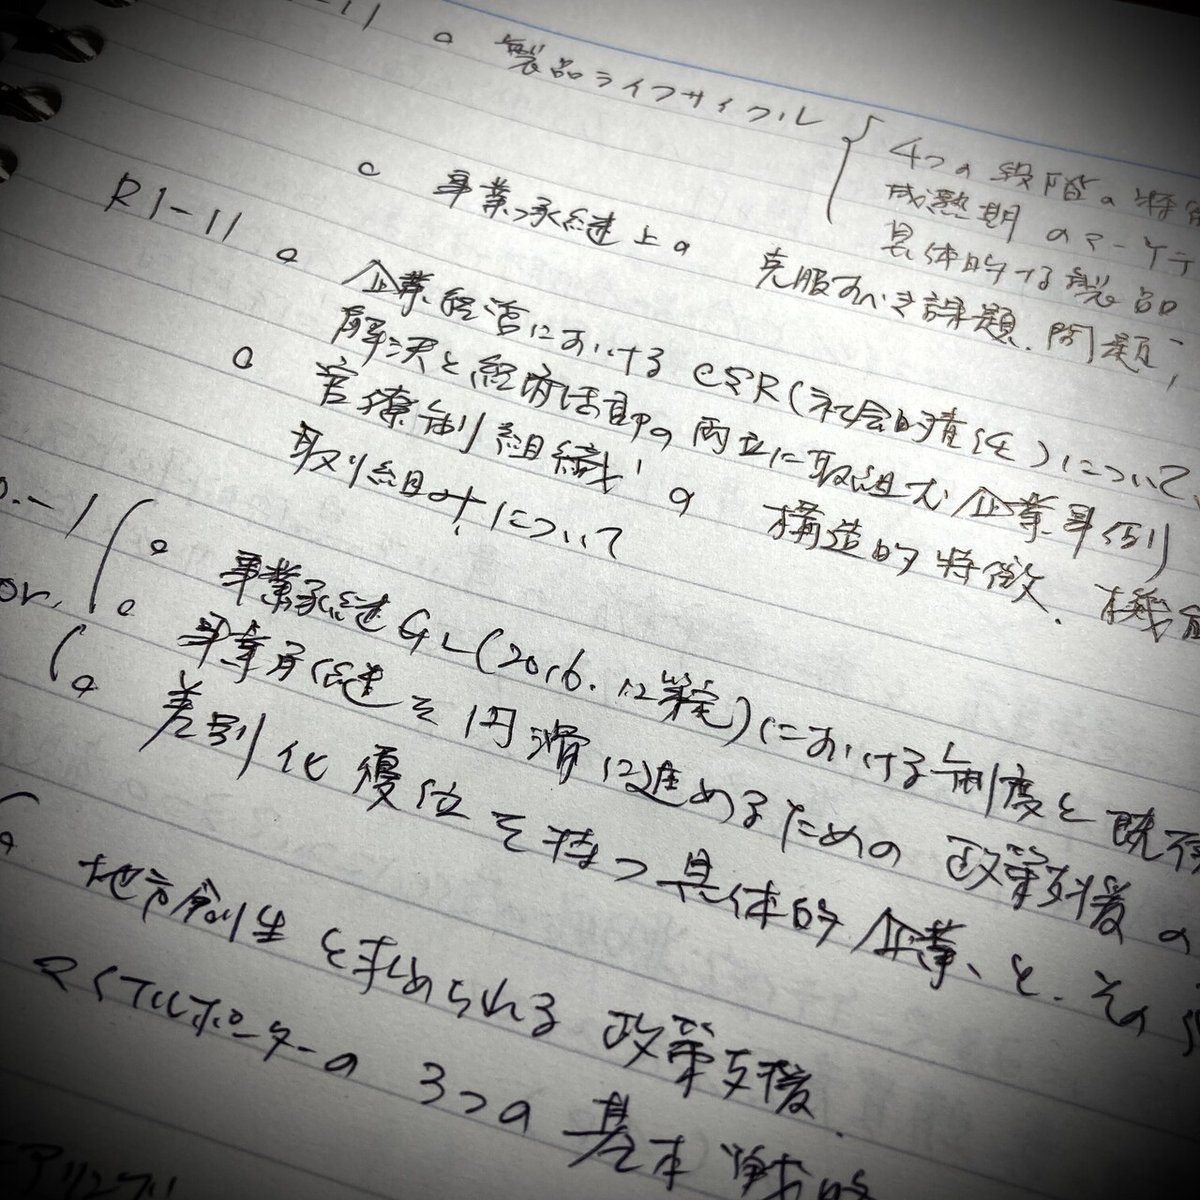 -11 ○ 製品ライフサイクル { 4つの段階の特
成熟期のマーケテ
具体的な製品
○ 事業承継上の 克服すべき課題、問題、
R1-11 ○ 企業経営における CSR(社会的責任)について、
解決と経済活動の両立に取組む企業事例
○ 官僚制組織の 構造的特徴、機能
取り組みについて
-1 ○ 事業承継GL(2016.12策定)における制度と既存
or. ○ 事業承継を円滑に進めるための 政策支援の
○ 差別化優位を持つ具体的企業、と、その
○ 地方創生と求められる 政策支援
マイケルポーターの 3つの 基本戦略